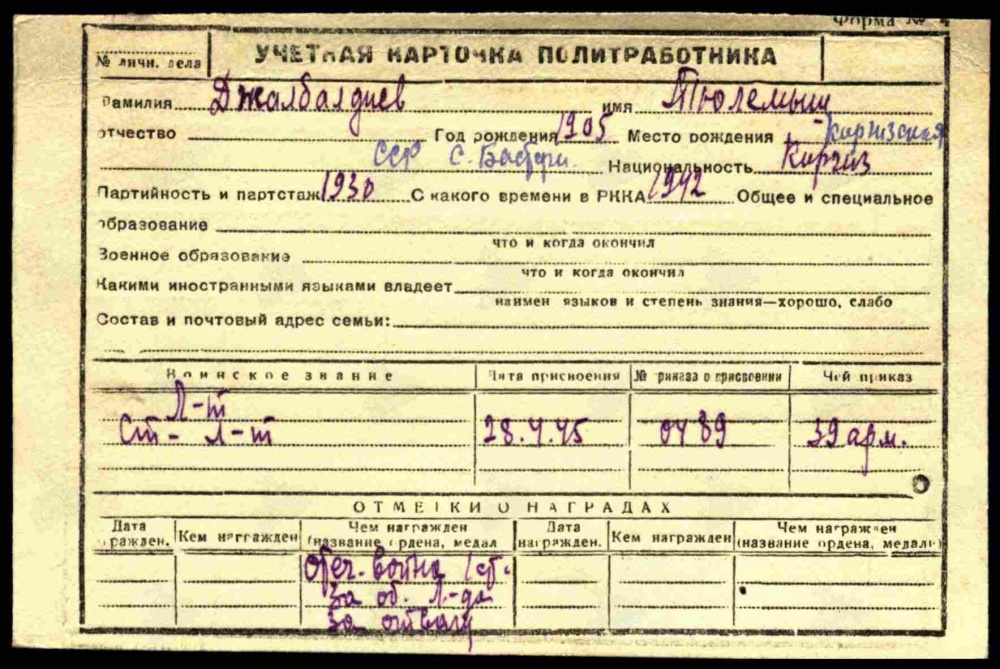 Форма № 4
УЧЕТНАЯ КАРТОЧКА ПОЛИТРАБОТНИКА
№ личн. дела
Фамилия Джалбалдиев имя Тюлемыш
отчество Год рождения 1905 Место рождения Киргизская
ССР С. Национальность Киргиз
Партийность и партстаж 1930 С какого времени в РККА 1942 Общее и специальное
образование
что и когда окончил
Военное образование
что и когда окончил
Какими иностранными языками владеет
наимен языков и степень знания—хорошо, слабо
Состав и почтовый адрес семьи:
Воинское звание Дата присвоения № приказа о присвоении Чей приказ
Л-т
Ст- Л-т 28.4.45 0489 39 арм.
ОТМЕТКИ О НАГРАДАХ
Дата награжден. Кем награжден Чем награжден (название ордена, медал Дата награжден. Кем награжден Чем награжден (название ордена, медали)
Отеч. война 1 ст.
За об. Л-да
За отвагу